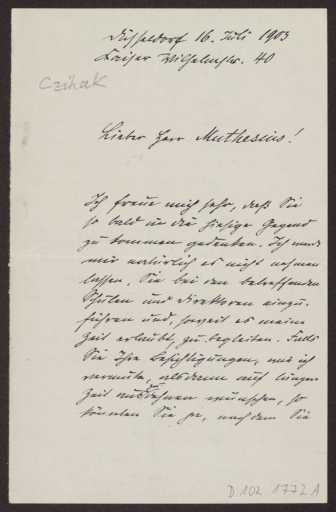 Düsseldorf 16. Juli 1903
Kaiser Wilhelmstr. 40
Czihak
Lieber Herr Muthesius!
Ich freue mich sehr, daß Sie
so bald in die hiesige Gegend
zu kommen gedenken. Ich werde
mir natürlich es nicht nehmen
lassen, Sie bei den betreffenden
Schulen und Direktoren einzu-
führen und, soweit es meine
Zeit erlaubt, zu begleiten. Falls
Sie Ihre Besichtigungen, wie ich
vermute, alsdann auf längere
Zeit auszudehnen wünschen, so
könnten Sie ja, nachdem Sie
D 102 1772 A